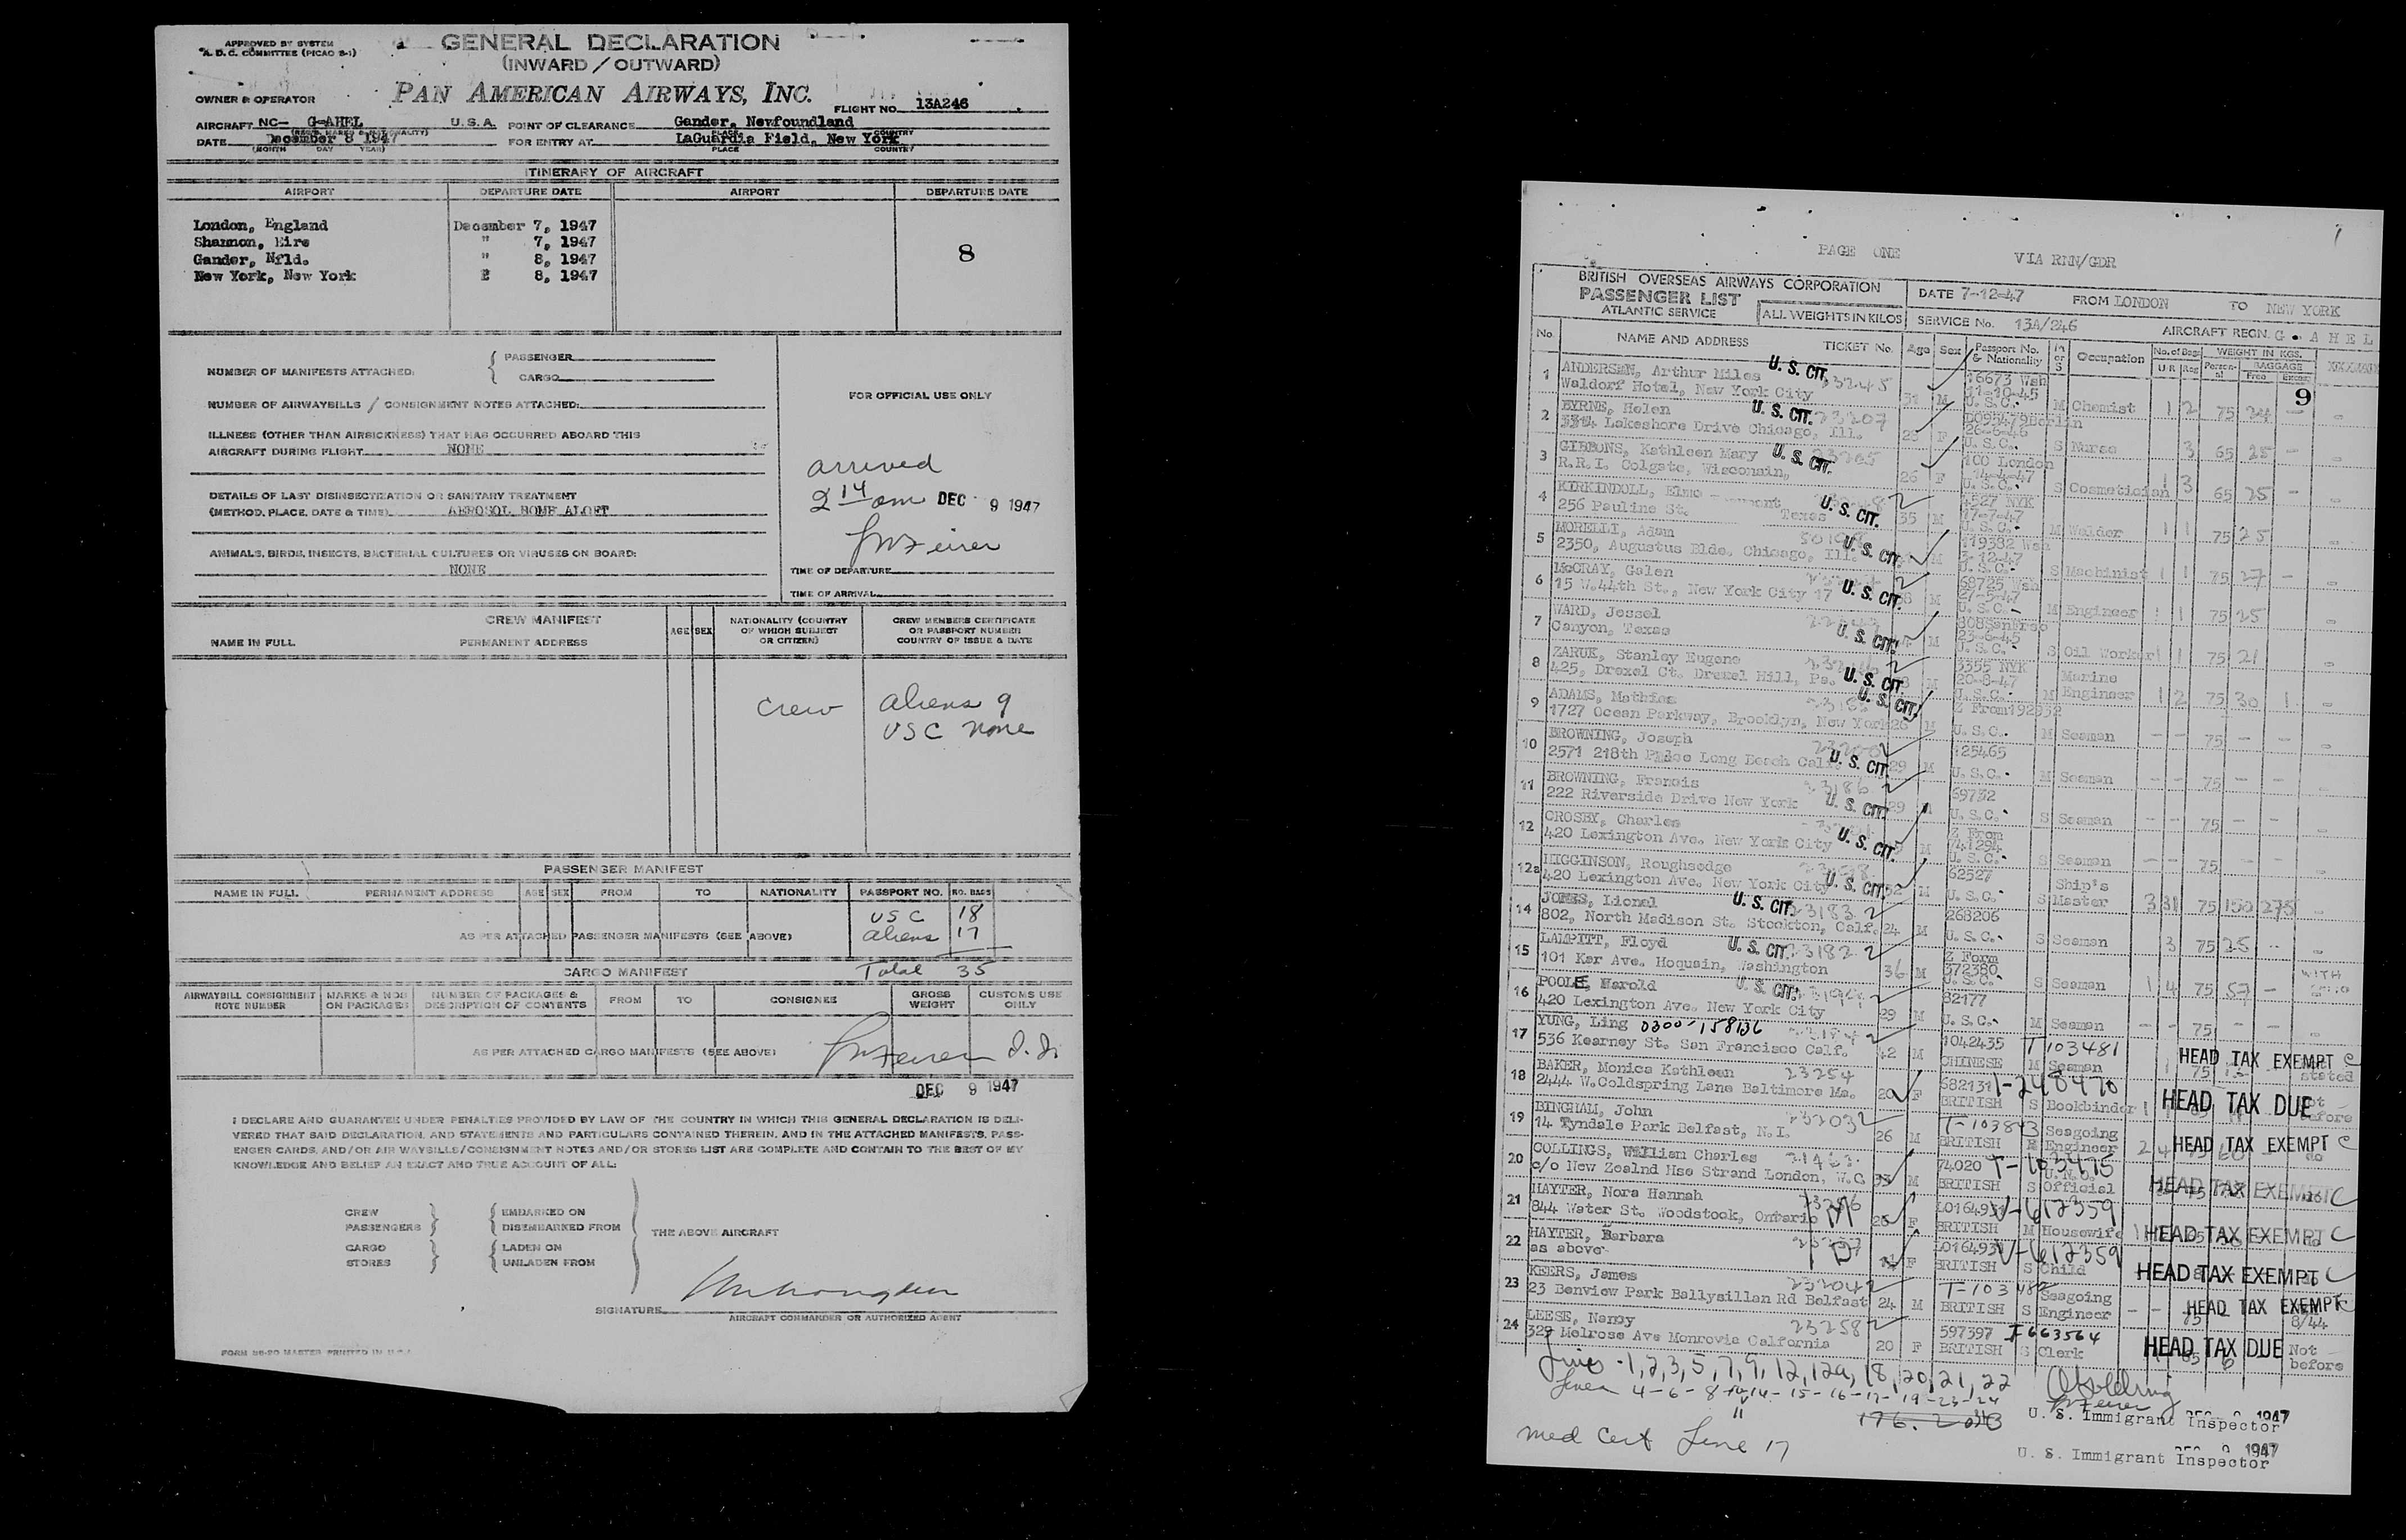 APPROVED BY SYSTEM
A. D. C. COMMITTEE (PICAO 8-1)
GENERAL DECLARATION
(INWARD / OUTWARD)
OWNER & OPERATOR PAN AMERICAN AIRWAYS, INC. FLIGHT NO. 13A246
AIRCRAFT NC- G-AHEL U.S.A. POINT OF CLEARANCE Gander, Newfoundland
DATE December 8 1947 FOR ENTRY AT LaGuardia Field, New York
(MONTH DAY YEAR) PLACE COUNTRY
ITINERARY OF AIRCRAFT
AIRPORT DEPARTURE DATE AIRPORT DEPARTURE DATE
London, England December 7, 1947
Shannon, Eire " 7, 1947
8
Gander, Nfld. " 8, 1947
New York, New York 8, 1947
NUMBER OF MANIFESTS ATTACHED: PASSENGER
CARGO
NUMBER OF AIRWAYBILLS / CONSIGNMENT NOTES ATTACHED:
ILLNESS (OTHER THAN AIRSICKNESS) THAT HAS OCCURRED ABOARD THIS
AIRCRAFT DURING FLIGHT NONE
DETAILS OF LAST DISINSECTIZATION OR SANITARY TREATMENT
(METHOD, PLACE, DATE & TIME) AEROSOL BOMB ALOFT
ANIMALS, BIRDS, INSECTS, BACTERIAL CULTURES OR VIRUSES ON BOARD:
NONE
FOR OFFICIAL USE ONLY
arrived
2 14 am DEC 9 1947
TIME OF DEPARTURE
TIME OF ARRIVAL
CREW MANIFEST
NAME IN FULL PERMANENT ADDRESS AGE SEX NATIONALITY (COUNTRY OF WHICH SUBJECT OR CITIZEN) CREW MEMBERS CERTIFICATE OR PASSPORT NUMBER COUNTRY OF ISSUE & DATE
crew aliens 9
USC none
PASSENGER MANIFEST
NAME IN FULL PERMANENT ADDRESS AGE SEX FROM TO NATIONALITY PASSPORT NO. NO. BAGS
USC 18
AS PER ATTACHED PASSENGER MANIFESTS (SEE ABOVE) aliens 17
CARGO MANIFEST Total 35
AIRWAYBILL CONSIGNMENT NOTE NUMBER MARKS & NOS ON PACKAGES NUMBER OF PACKAGES & DESCRIPTION OF CONTENTS FROM TO CONSIGNEE GROSS WEIGHT CUSTOMS USE ONLY
AS PER ATTACHED CARGO MANIFESTS (SEE ABOVE)
DEC 9 1947
I DECLARE AND GUARANTEE UNDER PENALTIES PROVIDED BY LAW OF THE COUNTRY IN WHICH THIS GENERAL DECLARATION IS DELI-
VERED THAT SAID DECLARATION, AND STATEMENTS AND PARTICULARS CONTAINED THEREIN, AND IN THE ATTACHED MANIFESTS, PASS-
ENGER CARDS, AND/OR AIR WAYBILLS/CONSIGNMENT NOTES AND/OR STORES LIST ARE COMPLETE AND CONTAIN TO THE BEST OF MY
KNOWLEDGE AND BELIEF AN EXACT AND TRUE ACCOUNT OF ALL:
CREW EMBARKED ON
PASSENGERS DISEMBARKED FROM THE ABOVE AIRCRAFT
CARGO LADEN ON
STORES UNLADEN FROM
SIGNATURE
AIRCRAFT COMMANDER OR AUTHORIZED AGENT
PAGE ONE VIA RNN/GDR
BRITISH OVERSEAS AIRWAYS CORPORATION
PASSENGER LIST
ATLANTIC SERVICE ALL WEIGHTS IN KILOS
DATE 7-12-47 FROM LONDON TO NEW YORK
SERVICE No. 13A/246 AIRCRAFT REGN. G. AHEL
No. NAME AND ADDRESS TICKET No. Age Sex Passport No. & Nationality M or S Occupation No. of Bags WEIGHT IN KGS. BAGGAGE
1 ANDERSEN, Arthur Miles U. S. CIT. 16673 Wsh
Waldorf Hotel, New York City 31 M 11-10-45 U.S.C. M Chemist 1 2 75 24 9
2 BYRNE, Helen U. S. CIT. 23207
Lakeshore Drive Chicago, Ill. F 26-6-46 U.S.C. S Nurse 3 65 25
3 GIBBONS, Kathleen Mary U. S. CIT. 100 London
R.R.I. Colgate, Wisconsin, 26 F 14-4-47 U.S.C. S Cosmetician 1 3 65 25
4 KIRKINDOLL, U. S. CIT. 4527 NYK
256 Pauline St. Texas 35 M 17-7-47 U.S.C. M Welder 1 1 75 25
5 MORELLI, Adam U. S. CIT. 119382 Wsh
2350, Augustus Blde. Chicago, Ill. M 3-12-47 U.S.C. S Machinist 1 1 75 27
6 McCRAY, Galen U. S. CIT. 68725 Wsh
15 W.44th St., New York City 17 M 27-5-47 U.S.C. M Engineer 1 1 75 25
7 WARD, Jessel U. S. CIT.
Canyon, Texas M 23-6-45 U.S.C. S Oil Worker 1 75 21
8 ZARUK, Stanley Eugene U. S. CIT. 3355 NYK
425, Drexel Ct. Drexel Hill, Pa. M 20-8-47 U.S.C. M Marine Engineer 1 2 75 30 1
9 ADAMS, Mathias U. S. CIT.
1727 Ocean Parkway, Brooklyn, New York 26 M U.S.C. M Seaman 75
10 BROWNING, Joseph U. S. CIT. 125465
2571 218th Place Long Beach Calif. 29 M U.S.C. M Seaman 75
11 BROWNING, Francis 23186 U. S. CIT. 69732
222 Riverside Drive New York 29 M U.S.C. S Seaman 75
12 CROSBY, Charles U. S. CIT. Z From 741294
420 Lexington Ave. New York City M U.S.C. S Seaman 75
12a HIGGINSON, Roughsedge U. S. CIT. 62527
420 Lexington Ave. New York City 52 M U.S.C. S Ship's Master 3 31 75 150 275
14 JONES, Lionel U. S. CIT. 23183 268206
802, North Madison St. Stockton, Calf. 24 M U.S.C. S Seaman 3 75 25
15 LAMPITT, Floyd U. S. CIT. 23182 Z Form 372380
101 Kar Ave. Hoquain, Washington 36 M U.S.C. S Seaman 1 4 75 57
16 POOLE, Harold U. S. CIT. 82177
420 Lexington Ave. New York City 29 M U.S.C. M Seaman 75
17 YUNG, Ling 0300-158136 1042435 T 103481
536 Kearney St. San Francisco Calf. 42 M CHINESE M Seaman 75 HEAD TAX EXEMPT C stated
18 BAKER, Monica Kathleen 23254 682131 T-248470
2444 W.Coldspring Lane Baltimore Ma. 20 F BRITISH S Bookbinder HEAD TAX DUE Not before
19 BINGHAM, John 23203 T-103843
14 Tyndale Park Belfast, N.I. 26 M BRITISH M Seagoing Engineer 2 4 HEAD TAX EXEMPT C
20 COLLINGS, William Charles 74020 T-103475
c/o New Zealnd Hse Strand London, W.C. M BRITISH S U.N.O. Official HEAD TAX EXEMPT C
21 HAYTER, Nora Hannah V-612359
844 Water St. Woodstock, Ontario F BRITISH M Housewife HEAD TAX EXEMPT C
22 HAYTER, Barbara V-612359
as above F BRITISH S Child HEAD TAX EXEMPT C
23 KEERS, James 23204 T-103482
23 Benview Park Ballysillan Rd Belfast 24 M BRITISH S Seagoing Engineer HEAD TAX EXEMPT 8/44
24 LEESE, Nancy 23258 597397 T 663564
329 Melrose Ave Monrovia California 20 F BRITISH S Clerk HEAD TAX DUE Not before
Lines -1,2,3,5,7,9,12,12a,18,20,21,22
Lines 4-6-8-10-14-15-16-17-19-23-24
11
med Cert Line 17
U. S. Immigrant Inspector
1947
U. S. Immigrant Inspector
9 1947